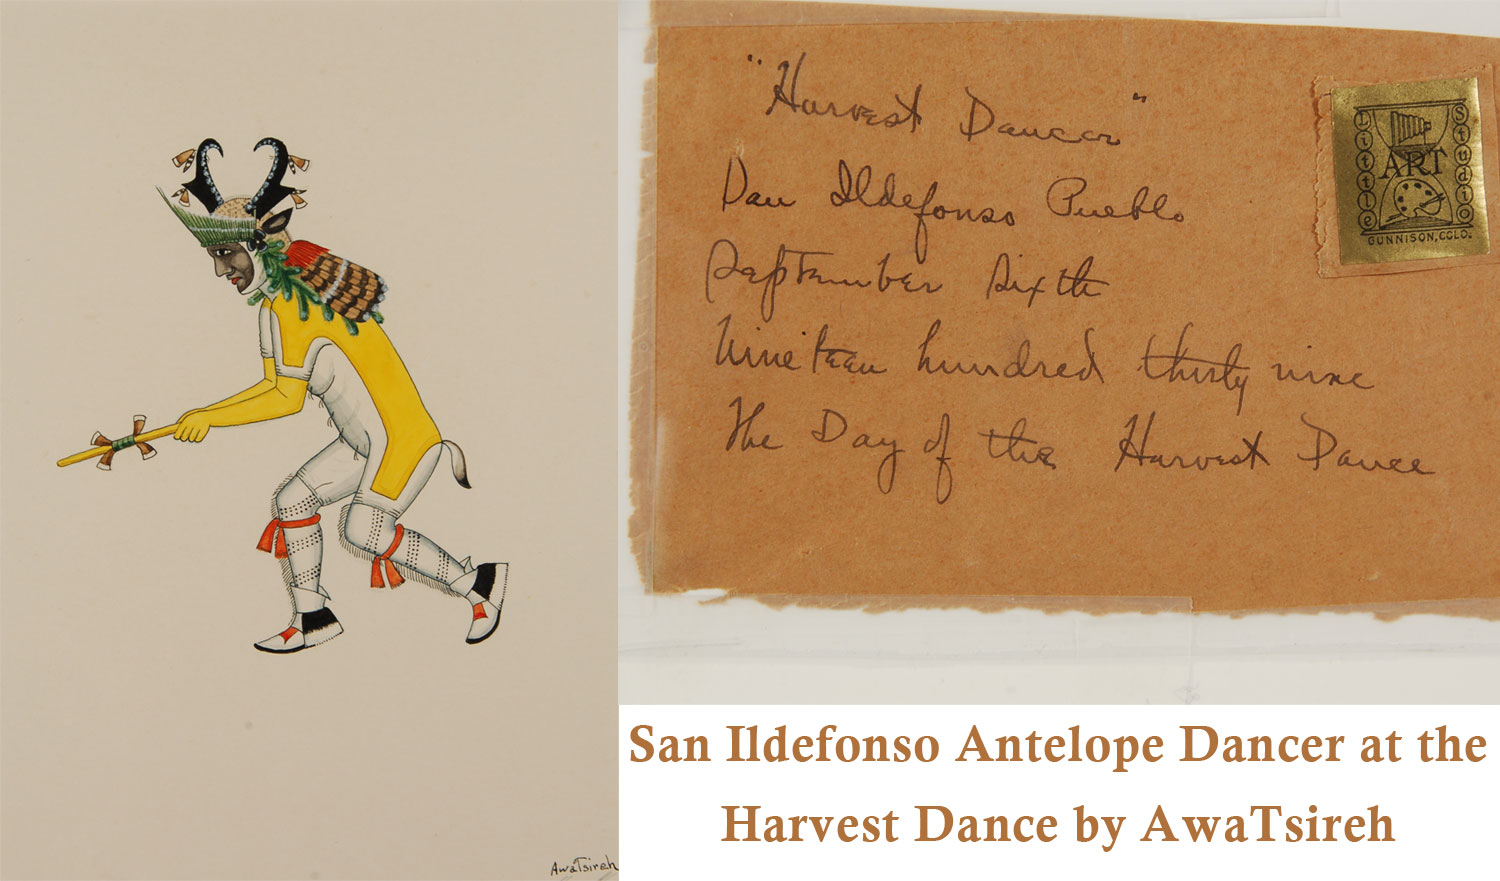 "Harvest Dancer"
San Ildefonso Pueblo
September Sixth
Nineteen hundred thirty nine
The Day of the Harvest Dance
Little
ART
Studio
GUNNISON, COLO.
AwaTsireh
San Ildefonso Antelope Dancer at the
Harvest Dance by AwaTsireh